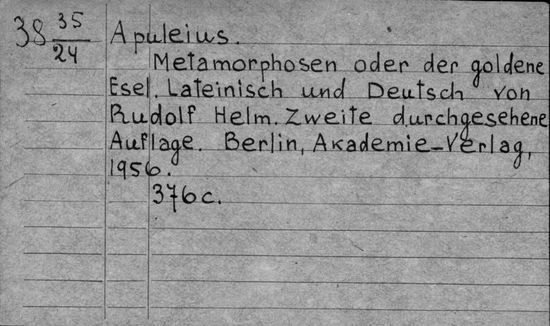 38 35/24 Apuleius.
Metamorphosen oder der goldene
Esel. Lateinisch und Deutsch von
Rudolf Helm. Zweite durchgesehene
Auflage. Berlin, Akademie-Verlag,
1956.
376 c.